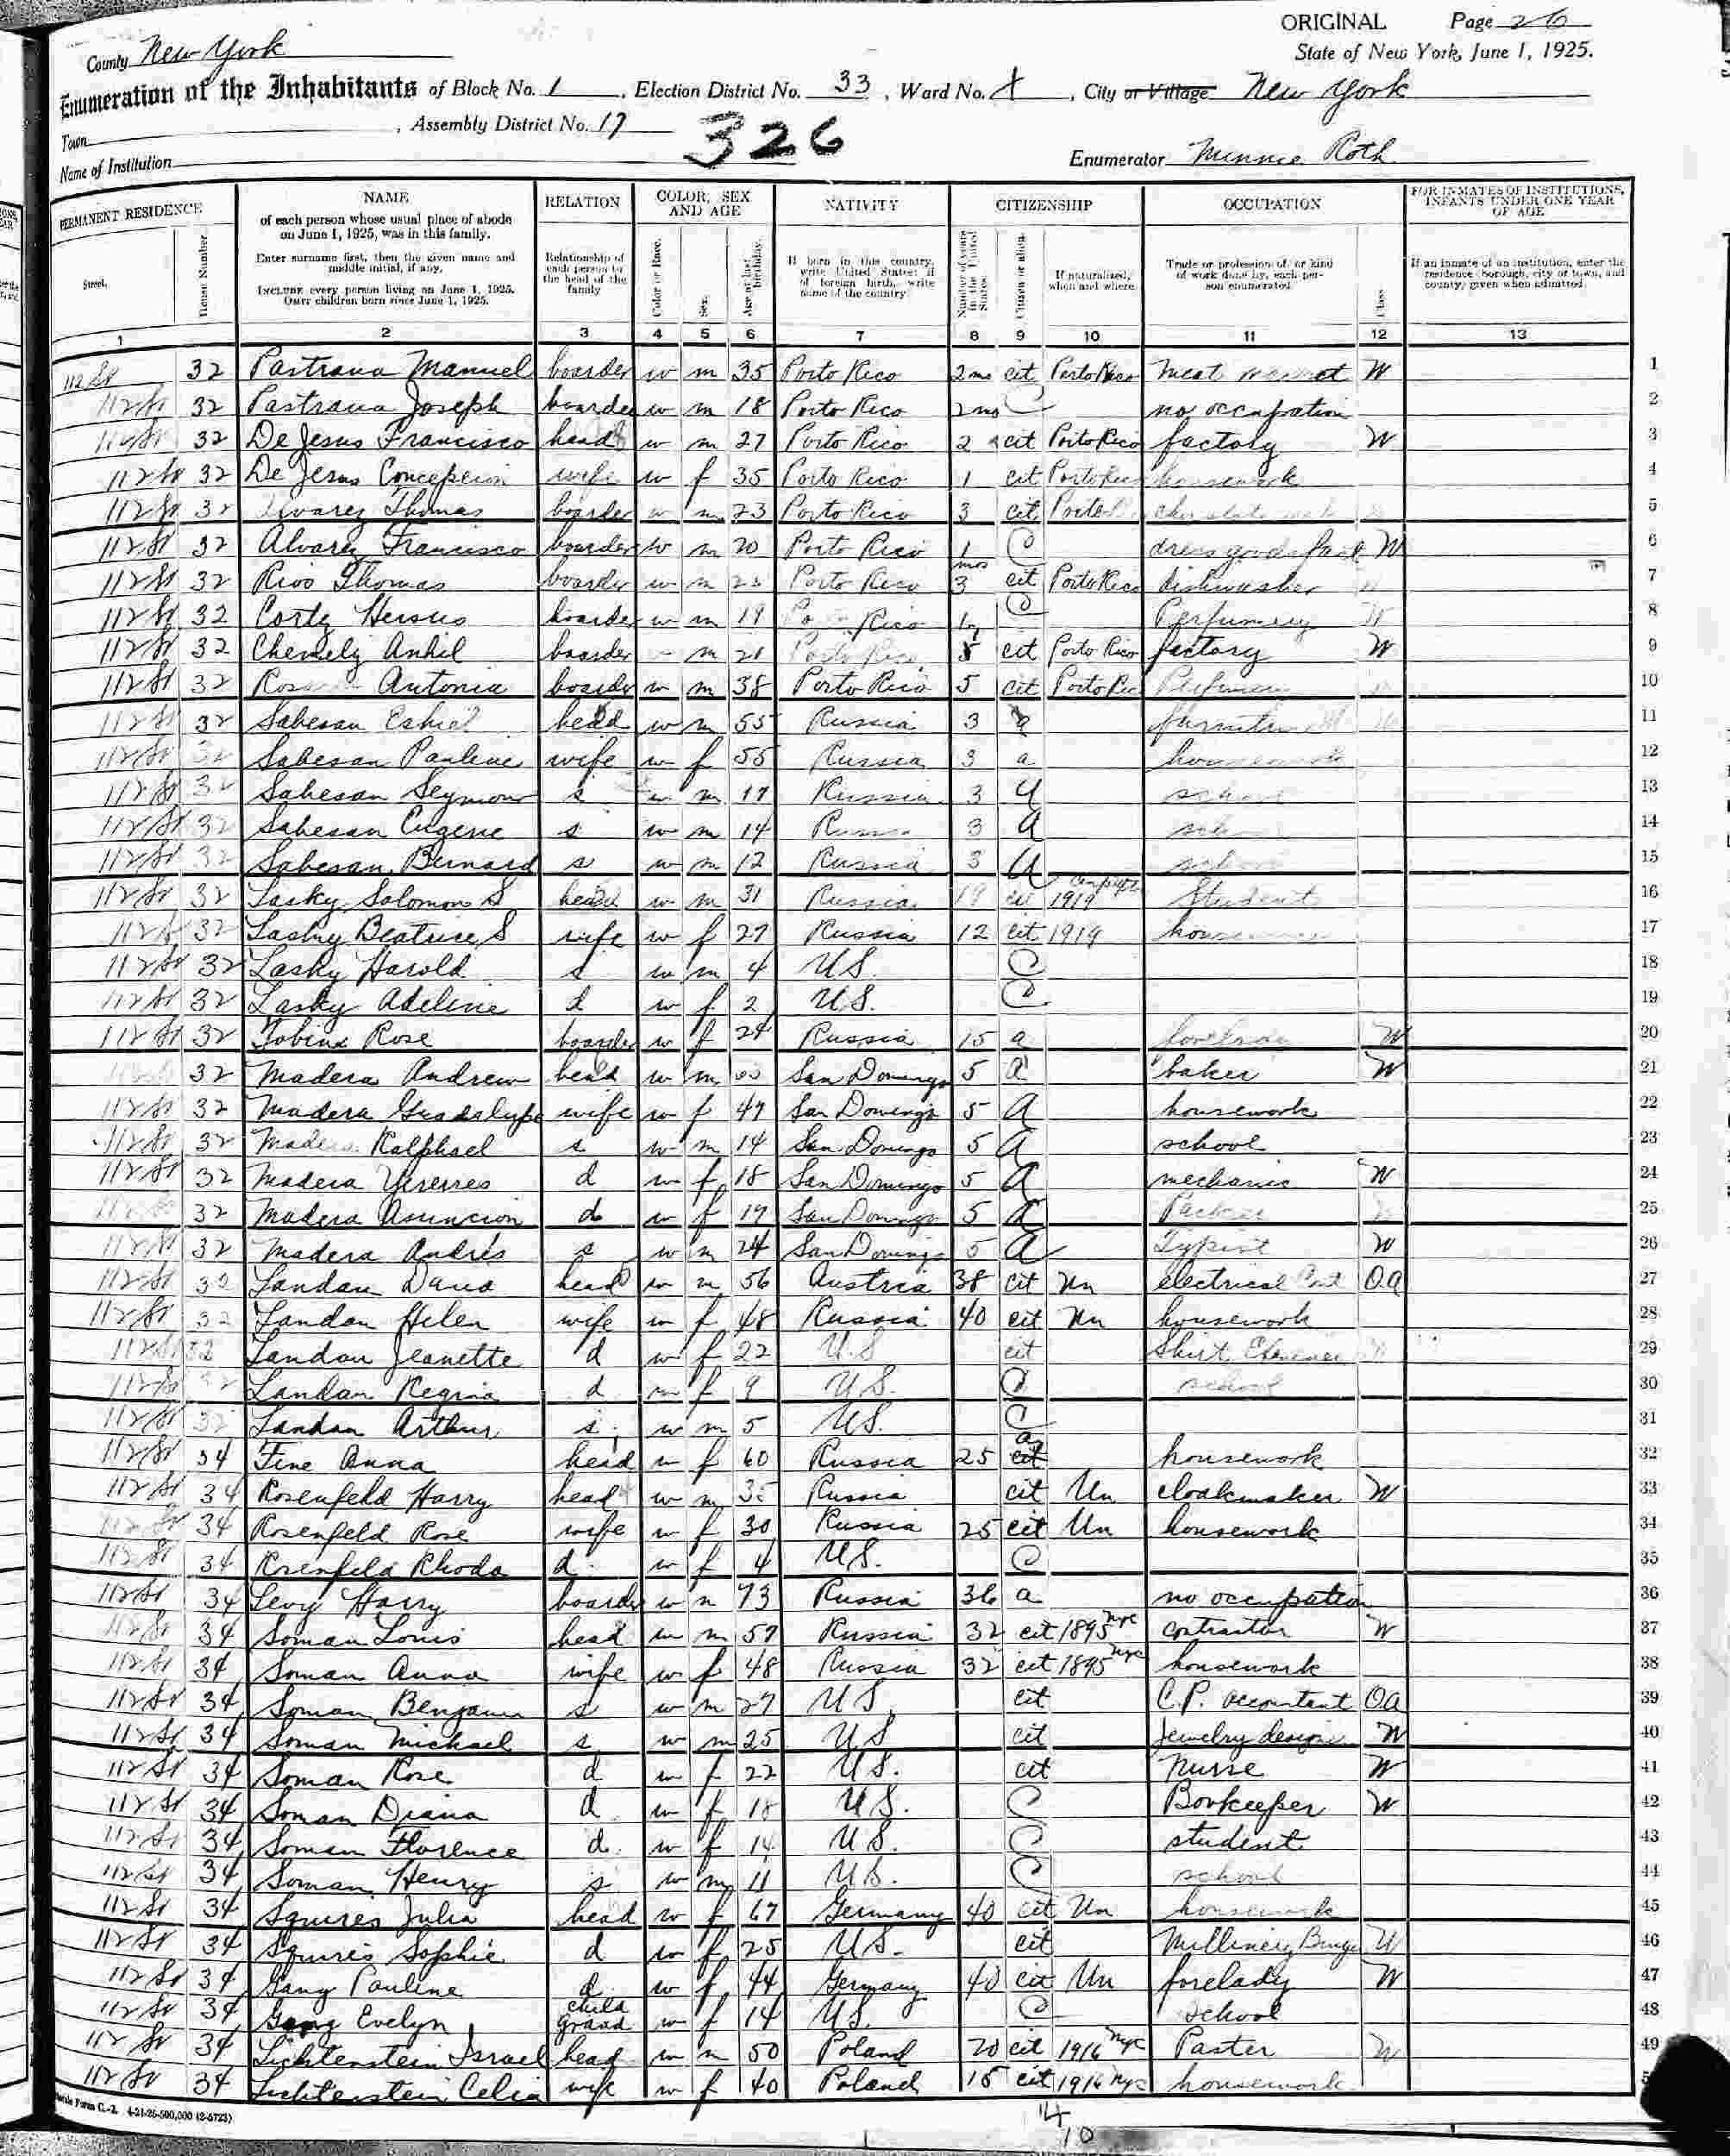 ORIGINAL Page 26
County New York State of New York, June 1, 1925.
Enumeration of the Inhabitants of Block No. 1, Election District No. 33, Ward No. , City or Village New York
Town , Assembly District No. 17 326
Name of Institution Enumerator Minnie Roth
PERMANENT RESIDENCE NAME RELATION COLOR, SEX AND AGE NATIVITY CITIZENSHIP OCCUPATION FOR INMATES OF INSTITUTIONS, INFANTS UNDER ONE YEAR OF AGE
Street. House Number
of each person whose usual place of abode on June 1, 1925, was in this family.
Enter surname first, then the given name and middle initial, if any.
INCLUDE every person living on June 1, 1925. OMIT children born since June 1, 1925.
Relationship of each person to the head of the family
Color or Race. Sex. Age at last birthday.
If born in this country, write United States; if of foreign birth, write name of the country.
Number of years in the United States. Citizen or alien. If naturalized, when and where.
Trade or profession of, or kind of work done by, each person enumerated Class
If an inmate of an institution, enter the residence (borough, city or town, and county) given when admitted.
1 2 3 4 5 6 7 8 9 10 11 12 13
112 St 32 Pastrana Manuel boarder w m 35 Porto Rico 2 mo cit Porto Rico meat W 1
112 St 32 Pastrana Joseph boarder w m 18 Porto Rico 2 mo C no occupation 2
112 St 32 De Jesus Francisco head w m 27 Porto Rico 2 cit Porto Rico factory W 3
112 St 32 De Jesus Concepcion wife w f 35 Porto Rico 1 cit Porto Rico housework 4
112 St 32 Thomas boarder w m 23 Porto Rico 3 cit Porto 5
112 St 32 Alvarez Francisco boarder w m 20 Porto Rico 1 C dress goods W 6
112 St 32 Rios Thomas boarder w m Porto Rico 3 mos cit Porto Rico dishwasher 7
112 St 32 boarder w m 19 Rico C Perfumery W 8
112 St 32 boarder m Porto Rico 5 cit Porto Rico factory W 9
112 St 32 Antonia boarder w m 38 Porto Rico 5 cit Porto Rico 10
112 St 32 Sabesan head w m 55 Russia 3 a 11
112 St 32 Sabesan Pauline wife w f 55 Russia 3 a 12
112 St 32 Sabesan Seymour s w m 17 Russia 3 a school 13
112 St 32 Sabesan Eugene s w m 14 Russia 3 a 14
112 St 32 Sabesan Bernard s w m 12 Russia 3 a school 15
112 St 32 Lasky Solomon S head w m 31 Russia 19 cit 1919 Student 16
112 St 32 Lasky Beatrice S wife w f 27 Russia 12 cit 1919 17
112 St 32 Lasky Harold s w m 4 U.S. C 18
112 St 32 Lasky Adeline d w f 2 U.S. C 19
112 St 32 Rose boarder w f 24 Russia 15 a W 20
32 Madera Andrew head w m San Domingo 5 a baker W 21
112 St 32 Madera Guadalupe wife w f 47 San Domingo 5 A housework 22
112 St 32 Madera Ralphael s w m 14 San Domingo 5 A school 23
112 St 32 Madera d w f 18 San Domingo 5 A mechanic W 24
32 Madera Asuncion d w f 19 San Domingo 5 A 25
112 St 32 Madera Andres s w m 24 San Domingo 5 A Typist W 26
112 St 32 Landau head w m 56 Austria 38 cit Un electrical Cont OA 27
112 St 32 Landau Helen wife w f 48 Russia 40 cit Un housework 28
112 St 32 Landau Jeanette d w f 22 U.S cit Shirt 29
112 St 32 Landau Regina d w f 9 U.S. C school 30
112 St 32 Landau Arthur s w m 5 U.S. C 31
112 St 34 Fine Anna head w f 60 Russia 25 a cit housework 32
112 St 34 Rosenfeld Harry head w m 35 Russia cit Un cloakmaker W 33
112 St 34 Rosenfeld Rose wife w f 30 Russia 25 cit Un housework 34
112 St 34 Rosenfeld Rhoda d w f 4 U.S. C 35
112 St 34 Levy Harry boarder w m 73 Russia 36 a no occupation 36
112 St 34 Soman Louis head w m 57 Russia 32 cit 1895 NYC contractor W 37
112 St 34 Soman Anna wife w f 48 Russia 32 cit 1895 NYC housework 38
112 St 34 Soman Benjamin s w m 27 U.S. cit C.P. accountant OA 39
112 St 34 Soman Michael s w m 25 U.S cit Jewelry W 40
112 St 34 Soman Rose d w f 22 U.S. cit Nurse W 41
112 St 34 Soman Diana d w f 18 U.S. C Bookeeper W 42
112 St 34 Soman Florence d w f 14 U.S. C student 43
112 St 34 Soman Henry s w m 11 U.S. C school 44
112 St 34 Squires Julia head w f 67 Germany 40 cit Un housework 45
112 St 34 Squires Sophie d w f 25 U.S. cit W 46
112 St 34 Gang Pauline d w f 44 Germany 40 cit Un forelady W 47
112 St 34 Gang Evelyn grand child w f 14 U.S. C school 48
112 St 34 Lichtenstein Israel head w m 50 Poland 20 cit 1916 NYC Paster W 49
112 St 34 Lichtenstein Celia wife w f 40 Poland 15 cit 1916 NYC housework
4-21-25-500,000 (2-5723)
14
10